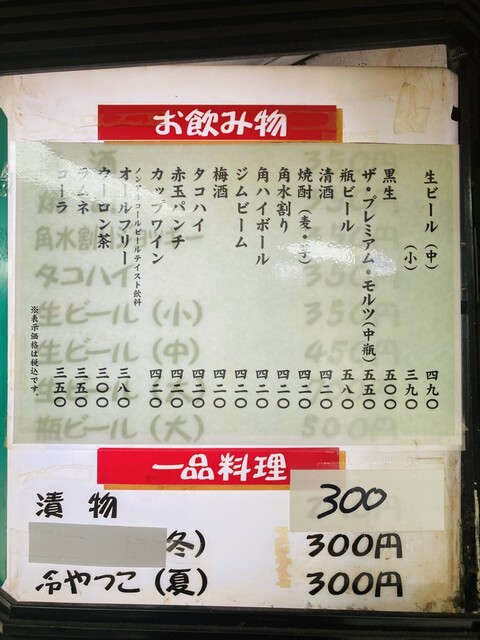 お飲み物
生ビール（中） 四九〇
（小） 三九〇
黒生 五〇〇
ザ・プレミアム・モルツ（中瓶） 五五〇
瓶ビール 五八〇
清酒 四二〇
焼酎（麦・芋） 四二〇
角水割り 四二〇
角ハイボール 四二〇
ジムビーム 四二〇
梅酒 四二〇
タコハイ 四二〇
赤玉パンチ 四二〇
カップワイン 四二〇
ノンアルコールビールテイスト飲料
オールフリー 三八〇
ウーロン茶 三〇〇
ラムネ 三五〇
コーラ 三五〇
※表示価格は税込です。
タコハイ 350
生ビール（小） 350円
生ビール（中） 450円
瓶ビール（大） 500円
一品料理
漬物 300
冬） 300円
冷やつこ（夏） 300円